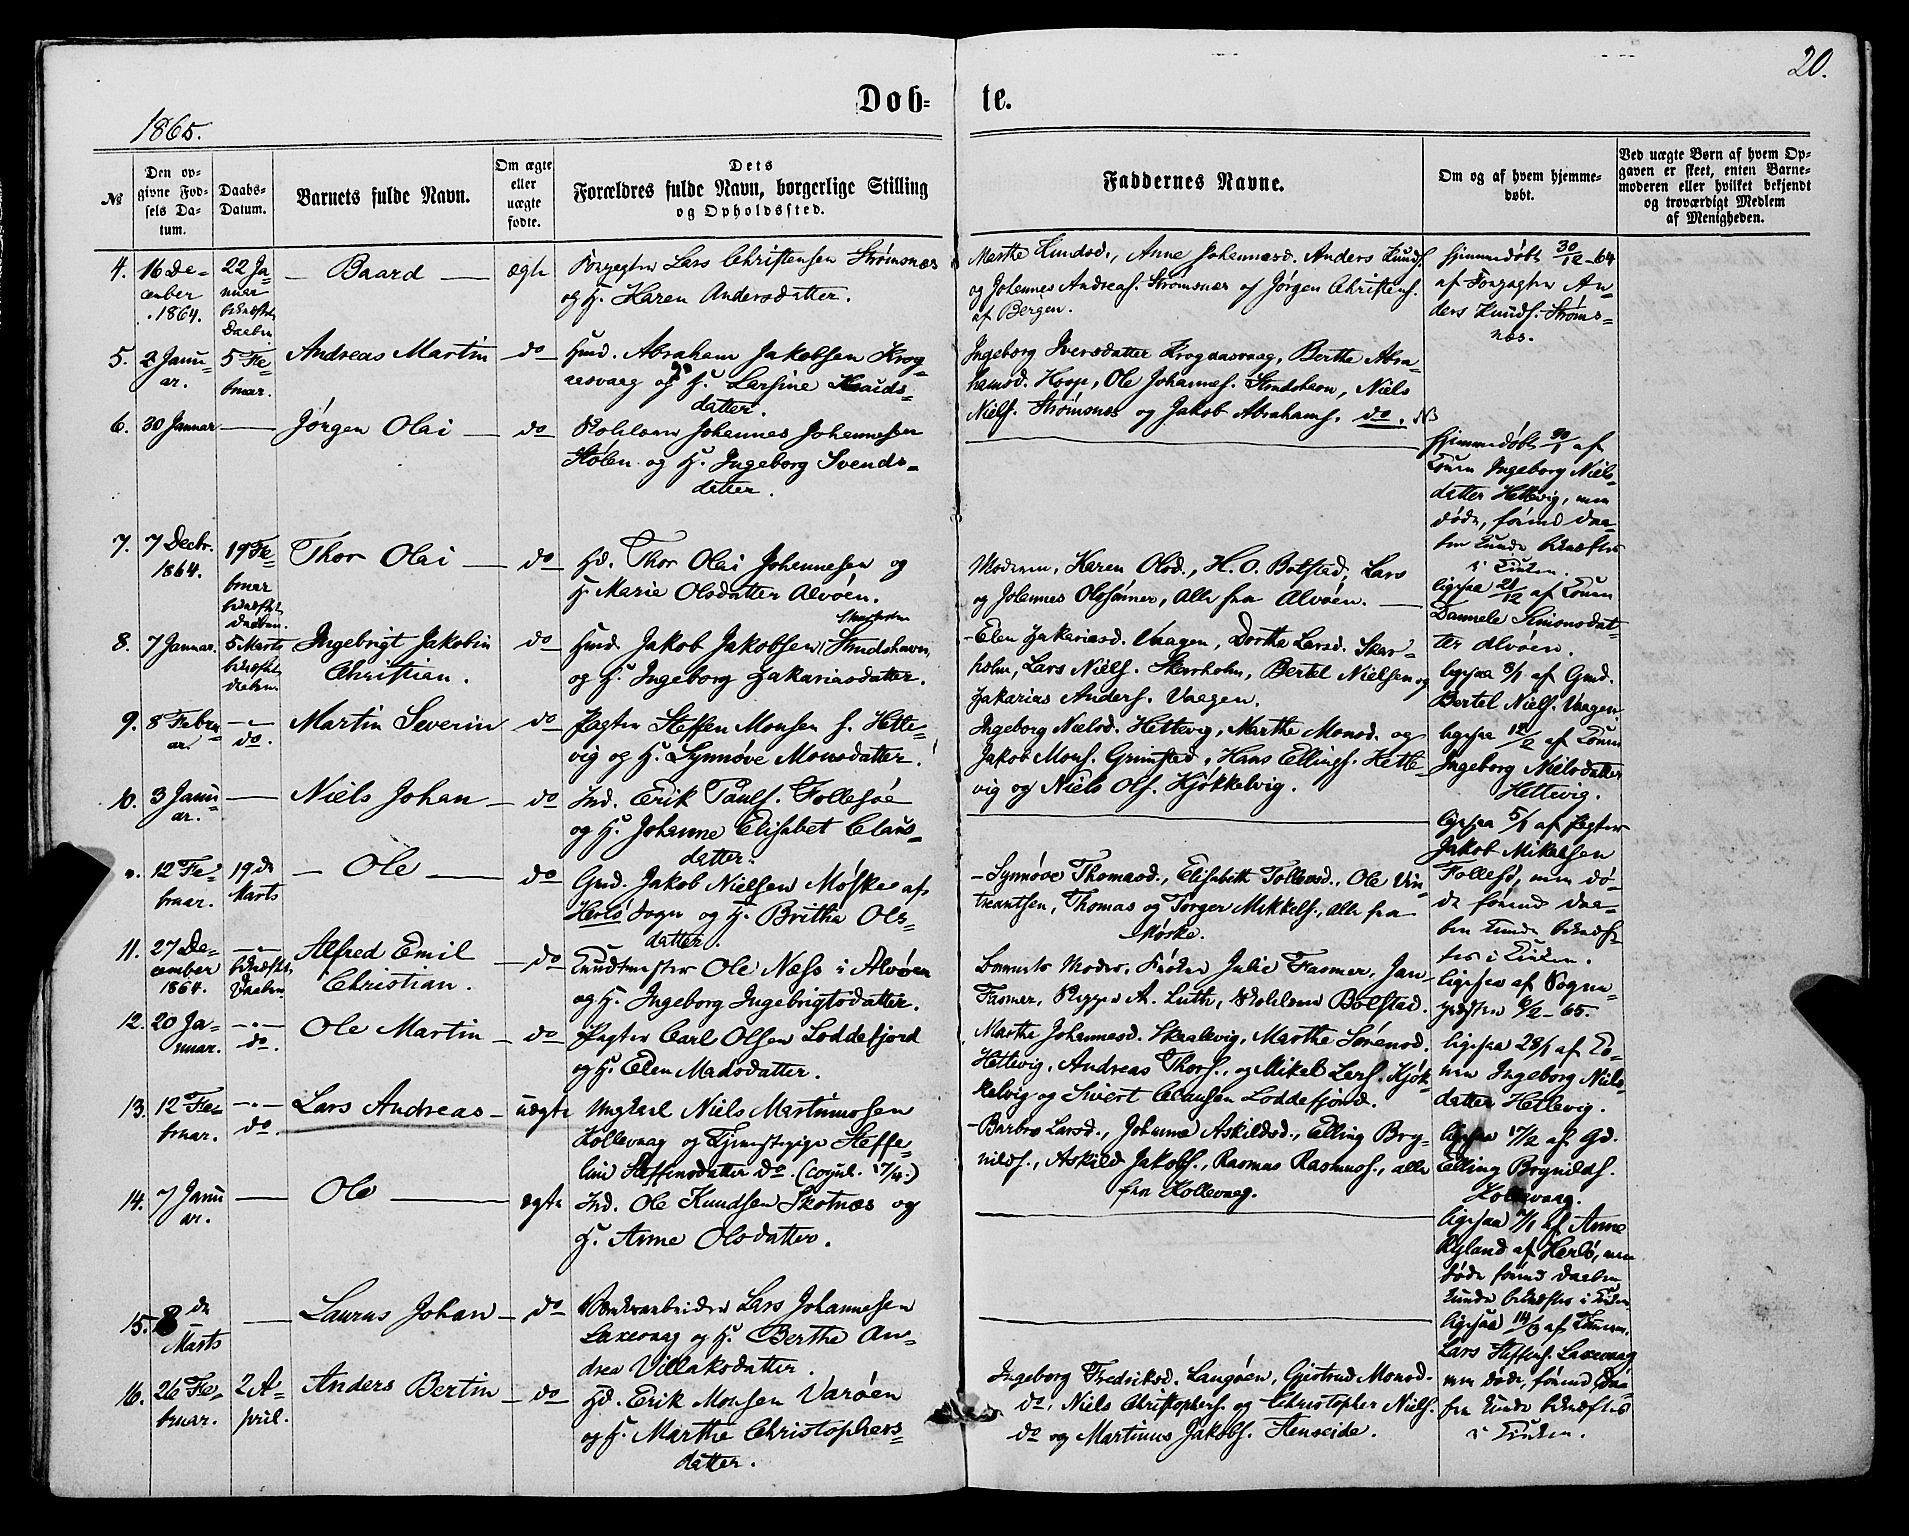 20.
Døb-te.
1865.
№ | Den opgivne Fødsels Datum. | Daabs-Datum. | Barnets fulde Navn. | Om ægte eller uægte fødte. | Dets Forældres fulde Navn, borgerlige Stilling og Opholdssted. | Faddernes Navne. | Om og af hvem hjemmedøbt. | Ved uægte Børn af hvem Opgaven er skeet, enten Barnemoderen eller hvilket bekjendt og troværdigt Medlem af Menigheden.
4. 16 December 1864. 22 Januar bekræftet Daaben
Baard
ægte
Forpagter Lars Christensen Strømsnæs
og H. Karen Andersdatter.
Marthe Knudsd., Anne Johannesd. Anders Knuds.
og Johannes Andreas. Strømsnæs og Jørgen Christens.
af Bergen.
hjemmedøbt 30/12-64
af Forpagter An-
ders Knuds. Strøms-
næs.
5. 2 Januar. 5 Februar.
Andreas Martin
do
Hmd. Abraham Jakobsen Krog-
aasvaag og H. Larsine Knuds-
datter.
Ingeborg Iversdatter Krogaasvaag, Berthe Abra-
hamsd. Hoop, Ole Johannes. Sundshavn, Niels
Niels. Strømsnæs og Jakob Abrahams. do.
6. 30 Januar
Jørgen Olai
do
Johannes Johannesen
Stølen og H. Ingeborg Svends-
datter.
hjemmedøbt 30/1 af
Ingeborg Niels-
datter Hettevig, men
døde, førend Daa-
ben kunde bekræftes
i Kirken.
7. 7 Decbr. 1864. 19 Februar bekræftet Daaben.
Thor Olai
do
Hd. Thor Olai Johannesen og
H. Marie Olsdatter Alvøen.
Moderen, Karen Olsd., H. O. Bolstad, Lars
og Johannes Olesønner, Alle fra Alvøen.
ligesaa 21/12 af
Dannele Simonsdat-
ter Alvøen.
8. 7 Januar. 5 Marts bekræftet Daaben
Ingebrigt Jakobin
Christian.
do
Hmd. Jakob Jakobsen Sundshavn,
og H. Ingeborg Zakariasdatter.
Elen Zakariasd. Vaagen, Dorthe Larsd. Skar-
holm, Lars Niels. Skarholm, Bertel Nielsen og
Zakarias Anders. Vaagen.
ligesaa 8/1 af Gmd.
Bertel Niels. Vaagen.
9. 8 Februar. do.
Martin Severin
do
Steffen Monsen Hette-
vig og H. Synnøve Monsdatter.
Ingeborg Nielsd. Hettevig, Marthe Monsd. og
Jakob Mons. Grimstad, Hans Ellings. Hette-
vig og Niels Ols. Kjøkkelvig.
ligesaa 12/2 af
Ingeborg Nielsdatter
Hettevig.
10. 3 Januar.
Niels Johan
do
Ind. Erik Pauls. Follesøe
og H. Johanne Elisabet Claus-
datter.
ligesaa 5/1 af
Jakob Mikelsen
Follesø, men dø-
de førend Daa-
ben kunde bekræf-
tes i Kirken.
12 Februar. 19de Marts
Ole
do
Gmd. Jakob Nielsen Møske af
Herlø Sogn og H. Britha Ols-
datter.
Synnøve Thomasd., Elisabeth Tollevsd., Ole
Thomas og Torger Mikkels., alle fra
Mørke.
11. 27 December 1864. bekræftet Daaben
Alfred Emil
Christian.
do
Ole Næss i Alvøen
og H. Ingeborg Ingebrigtsdatter.
Barnets Moder, Frøken Julie Fasmer, Jan
Fasmer, A. Luth, Bolstad.
ligesaa af Sogne-
præsten 6/2-65.
12. 20 Januar. do.
Ole Martin
do
Carl Olsen Loddefjord
og H. Elen Madsdatter.
Marthe Johannesd. Skaalevig, Marthe Sørensd.
Hettevig, Andreas Thors., og Mikel Lars. Kjøk-
kelvig og Sivert Clausen Loddefjord.
ligesaa 28/1 af Ko-
nen Ingeborg Niels-
datter Hettevig.
13. 12 Februar. do.
Lars Andreas
uægte
Ungkarl Niels Martinusen
Kollevaag og Tjenestepige Steffe-
line Steffensdatter do. (copul. 17/4.)
Barbro Larsd., Johanne Askildsd., Elling Bry-
nilds., Askild Jakobs., Rasmus Rasmuss., alle
fra Kollevaag.
ligesaa 17/2 af Gd.
Elling Brynilds.
Kollevaag.
14. 7 Januar.
Ole
ægte
Ind. Ole Knudsen Skotnæs og
H. Anne Olsdatter.
ligesaa 7/1 af Anne
Ryland af Herlø, men
døde førend Daaben
kunde bekræftes i Kirken
15. 8de Marts
Laurus Johan
do
Lars Johannesen
Laxevaag og H. Berthe An-
drea Villaksdatter.
ligesaa 14/3 af
Lars Steffens. Laxevaag
men døde, førend Daa-
ben kunde bekræftes
i Kirken.
16. 26 Februar. 2 April.
Anders Bertin
do
Hd. Erik Monsen Varøen
og H. Marthe Christophers-
datter.
Ingeborg Fredriksd. Langøen, Gjertrud Monsd.
do, Niels Christophers. og Christopher Niels.
do og Martinus Jakobs. Stenseide.